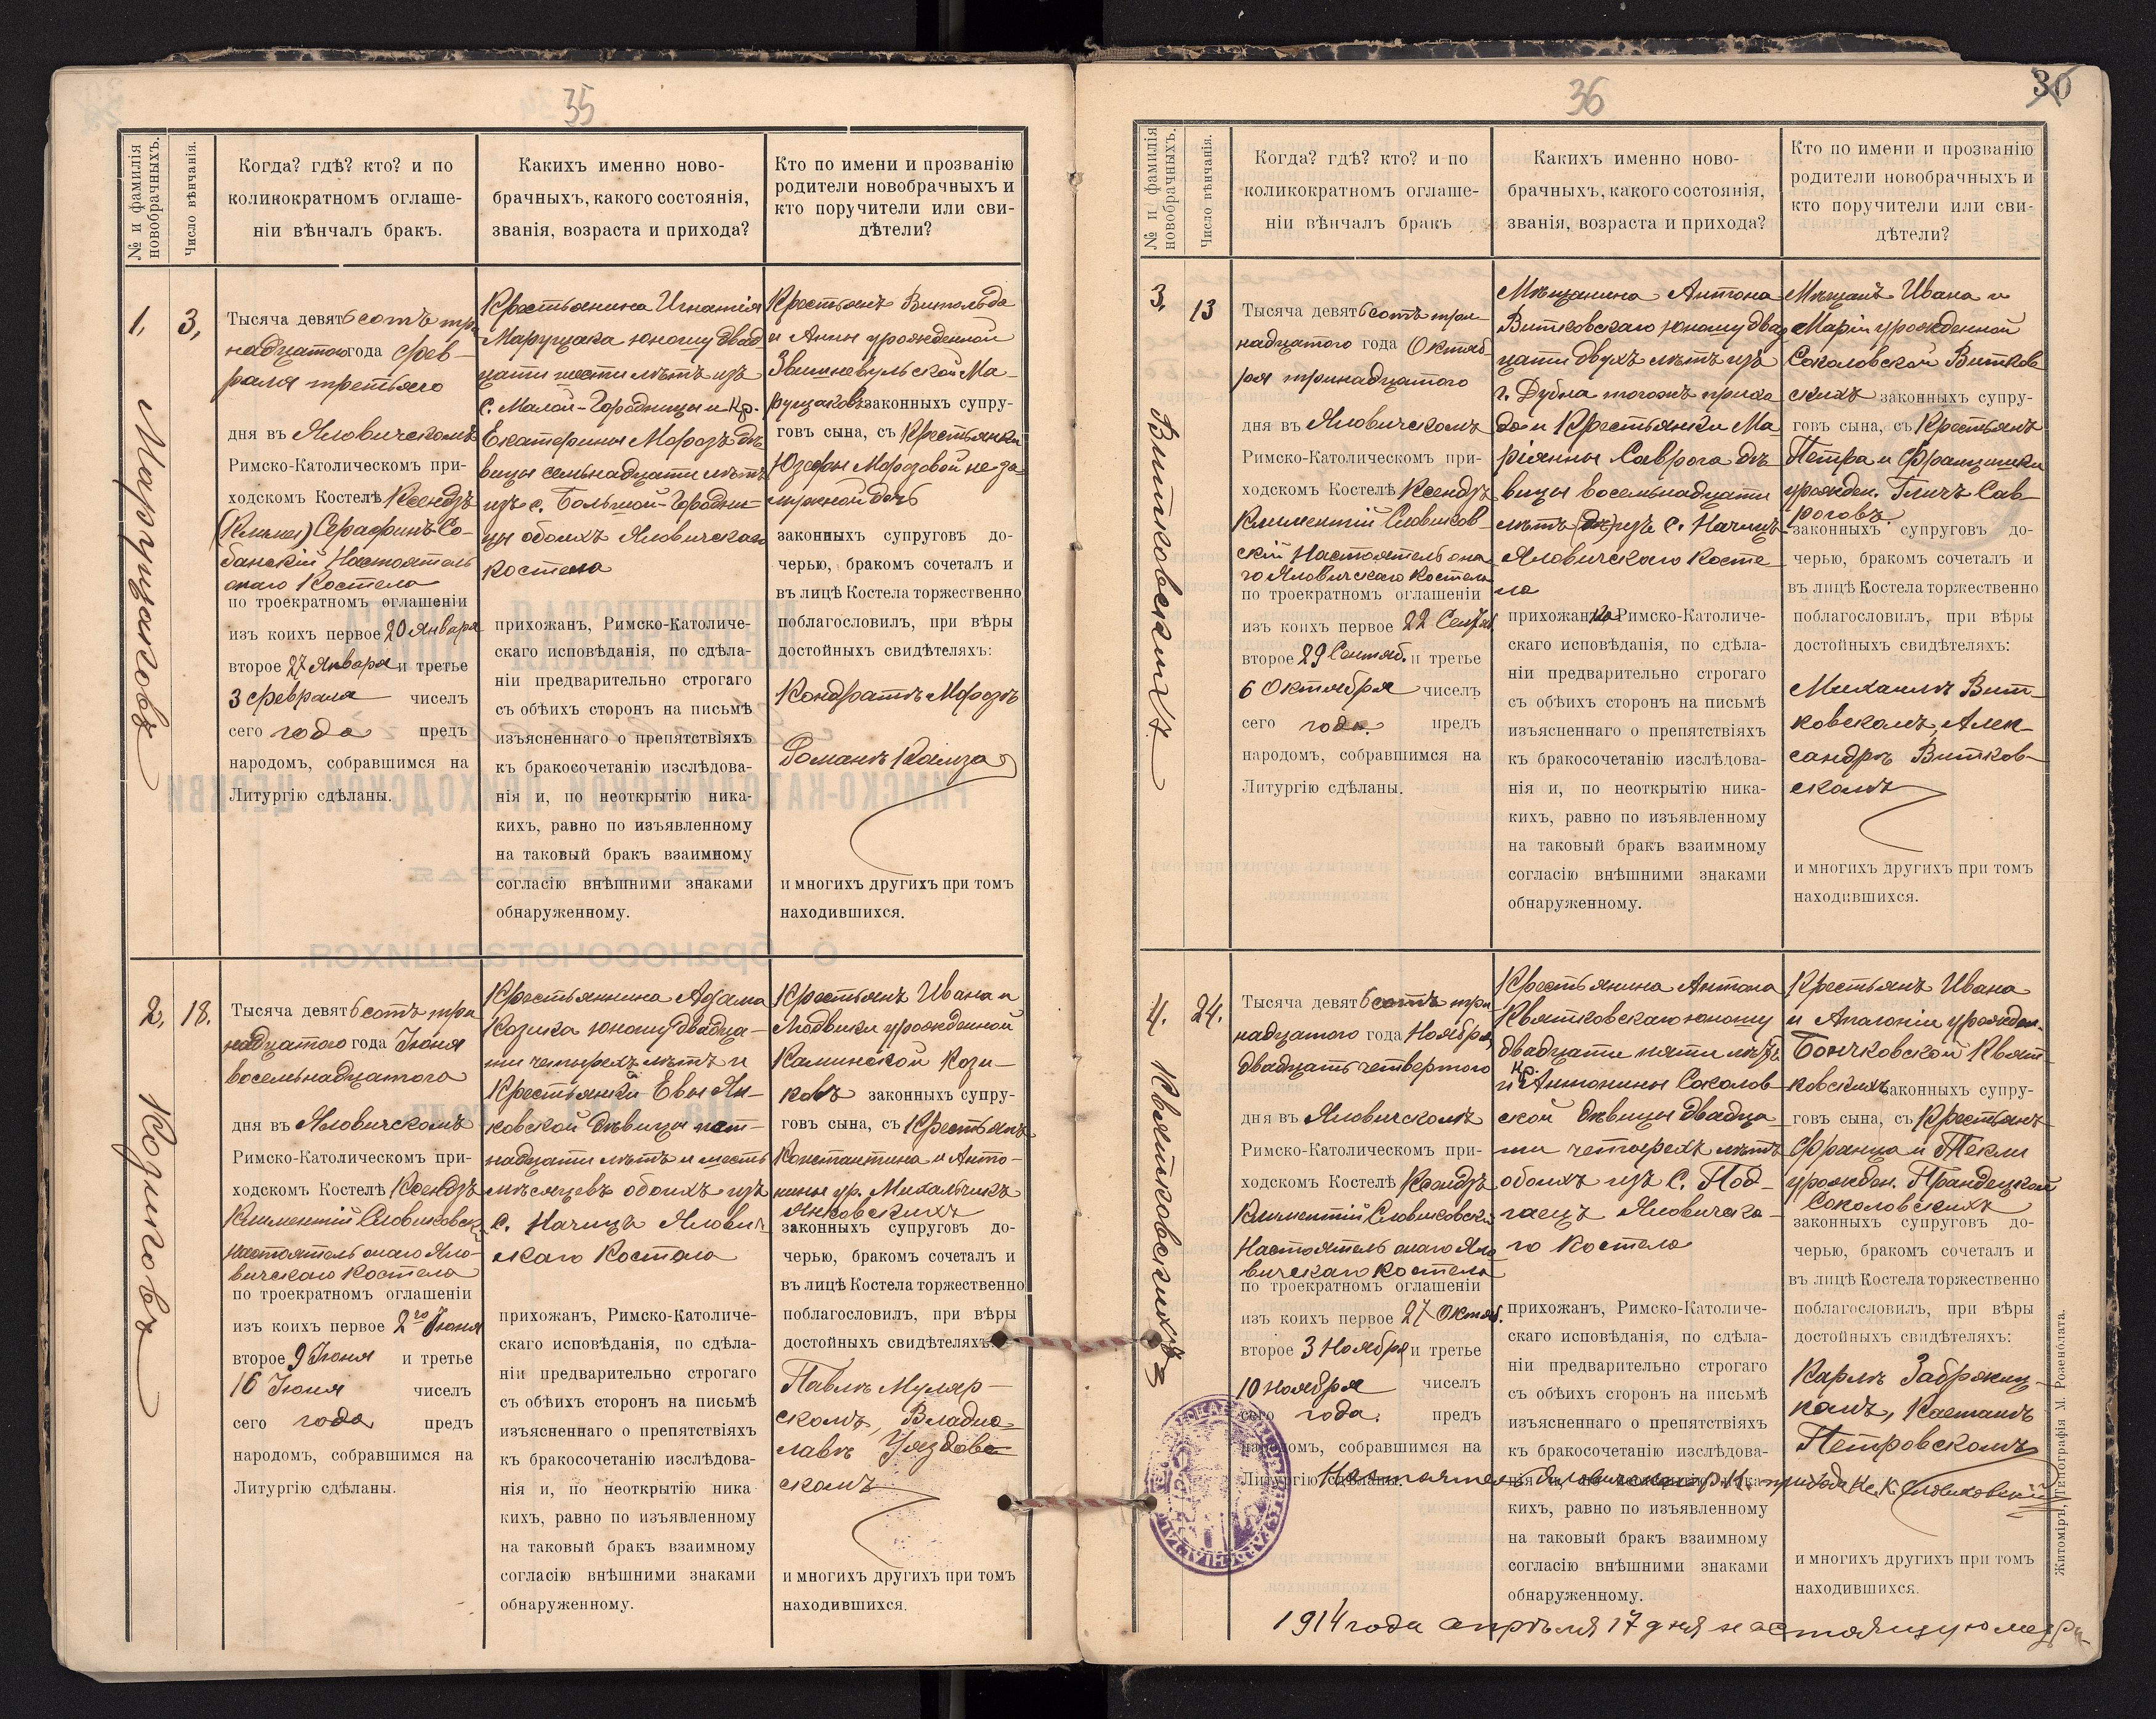 35
№ и фамилія новобрачныхъ.
Число вѣнчанія.
Когда? гдѣ? кто? и по
коликократномъ оглаше-
ніи вѣнчалъ бракъ.
Какихъ именно ново-
брачныхъ, какого состоянія,
званія, возраста и прихода?
Кто по имени и прозванію
родители новобрачныхъ и
кто поручители или сви-
дѣтели?
1,
Марущаковъ
3,
Тысяча девятьсотъ три
надцатого года Фев-
раля третьяго
дня въ Яловичскомъ
Римско-Католическомъ при-
ходскомъ Костелѣ Ксендзъ
Серафинъ Со-
банскій Настоятель
онаго Костела
по троекратномъ оглашеніи
изъ коихъ первое 20 Января
второе 27 Января и третье
3 Февраля чиселъ
сего года предъ
народомъ, собравшимся на
Литургію сдѣланы.
Крестьянина Игнатія
Марущака юношу двад
цати шести лѣтъ изъ
с. Малой-Городницы и Кр.
Екатерины Морозъ дѣ
вицы семьнадцати лѣтъ
изъ с. Большой-Городни-
цы обоихъ Яловичскаго
костела
прихожанъ, Римско-Католиче-
скаго исповѣданія, по сдѣла-
ніи предварительно строгаго
съ обѣихъ сторонъ на письмѣ
изъясненнаго о препятствіяхъ
къ бракосочетанію изслѣдова-
нія и, по неоткрытію ника-
кихъ, равно по изъявленному
на таковый бракъ взаимному
согласію внѣшними знаками
обнаруженному.
Крестьянъ Витольда
и Анны урожденной
Ма-
рущаковъ законныхъ супру-
говъ сына, съ Крестьянки
Юзефы Морозовой не за
мужной дочь
законныхъ супруговъ до-
черью, бракомъ сочеталъ и
въ лицѣ Костела торжественно
поблагословилъ, при вѣры
достойныхъ свидѣтеляхъ:
Кондратъ Морозъ
Романъ
и многихъ другихъ при томъ
находившихся.
2,
Козиковъ
18.
Тысяча девятьсотъ три
надцатого года Іюня
восемьнадцатого
дня въ Яловичскомъ
Римско-Католическомъ при-
ходскомъ Костелѣ Ксендзъ
Климентій Словиковскій
Настоятель онаго Яло-
вичскаго костела
по троекратномъ оглашеніи
изъ коихъ первое 2го Іюня
второе 9 Іюня и третье
16 Іюня чиселъ
сего года предъ
народомъ, собравшимся на
Литургію сдѣланы.
Крестьянина Адама
Козика юношу двадца-
ти четырехъ лѣтъ и
Крестьянки Евы Ян-
ковской дѣвицы пят-
надцати лѣтъ и шесть
мѣсяцевъ обоихъ изъ
с. Начица Ялович
скаго Костела
прихожанъ, Римско-Католиче-
скаго исповѣданія, по сдѣла-
ніи предварительно строгаго
съ обѣихъ сторонъ на письмѣ
изъясненнаго о препятствіяхъ
къ бракосочетанію изслѣдова-
нія и, по неоткрытію ника
кихъ, равно по изъявленному
на таковый бракъ взаимному
согласію внѣшними знаками
обнаруженному.
Крестьянъ Ивана и
Людвики урожденной
Калинской Кози-
ковъ законныхъ супру-
говъ сына, съ Крестьянъ
Константина и Анто-
нины ур. Михальчикъ
Янковскихъ
законныхъ супруговъ до-
черью, бракомъ сочеталъ и
въ лицѣ Костела торжественно
поблагословилъ, при вѣры
достойныхъ свидѣтеляхъ:
Павлъ Муляр-
скомъ, Владис-
лавъ Уяздов-
скомъ
и многихъ другихъ при томъ
находившихся.
36
36
№ и фамилія новобрачныхъ.
Число вѣнчанія.
Когда? гдѣ? кто? и по
коликократномъ оглаше-
ніи вѣнчалъ бракъ
Какихъ именно ново-
брачныхъ, какого состоянія,
званія, возраста и прихода?
Кто по имени и прозванію
родители новобрачныхъ и
кто поручители или сви-
дѣтели?
3,
Витковскихъ
13
Тысяча девятьсотъ три-
надцатого года Октяб-
ря тринадцатого
дня въ Яловичскомъ
Римско-Католическомъ при-
ходскомъ Костелѣ Ксендзъ
Климентій Словиков-
скій Настоятель она
го Яловичскаго Костела
по троекратномъ оглашеніи
изъ коихъ первое 22 Сентяб.
второе 29 Сентяб. и третье
6 Октября чиселъ
сего года. предъ
народомъ, собравшимся на
Литургію сдѣланы.
Мѣщанина Антона
Витковскаго юношу двад
цати двухъ лѣтъ изъ
г. Дубна тогожъ прихо
да и Крестьянки Ма-
ріанны Саврога дѣ
вицы восемьнадцати
лѣтъ изъ с. Начицъ
Яловичскаго Косте
ла
прихожанъ Римско-Католиче-
скаго исповѣданія, по сдѣла-
ніи предварительно строгаго
съ обѣихъ сторонъ на письмѣ
изъясненнаго о препятствіяхъ
къ бракосочетанію изслѣдова-
нія и, по неоткрытію ника-
кихъ, равно по изъявленному
на таковый бракъ взаимному
согласію внѣшними знаками
обнаруженному.
Мѣщанъ Ивана и
Маріи урожденной
Соколовской Витков
скихъ законныхъ супру-
говъ сына, съ Крестьянъ
Петра и Францишки
урожден. Гличъ Сав-
роговъ
законныхъ супруговъ до-
черью, бракомъ сочеталъ и
въ лицѣ Костела торжественно
поблагословилъ, при вѣры
достойныхъ свидѣтеляхъ:
Михаилъ Вит-
ковскомъ, Алек-
сандръ Витков-
скомъ
и многихъ другихъ при томъ
находившихся.
4.
Квятковскихъ
24.
Тысяча девятьсотъ три
надцатого года Ноября
двадцать четвертого
дня въ Яловичскомъ
Римско-Католическомъ при-
ходскомъ Костелѣ Ксендзъ
Климентій Словиковскій
Настоятель онаго Яло
вичскаго костела
по троекратномъ оглашеніи
изъ коихъ первое 27 Октяб.
второе 3 Ноября и третье
10 Ноября чиселъ
сего года. предъ
народомъ, собравшимся на
Литургію сдѣланы.
Крестьянина Антона
Квятковскаго юношу
двадцати пяти лѣтъ
и кр. Антонины Соколов-
ской дѣвицы двадца-
ти четырехъ лѣтъ
обоихъ изъ с. Под-
гаецъ Яловичска-
го костела
прихожанъ, Римско-Католиче-
скаго исповѣданія, по сдѣла-
ніи предварительно строгаго
съ обѣихъ сторонъ на письмѣ
изъясненнаго о препятствіяхъ
къ бракосочетанію изслѣдова-
нія и, по неоткрытію ника-
кихъ, равно по изъявленному
на таковый бракъ взаимному
согласію внѣшними знаками
обнаруженному.
Крестьянъ Ивана
и Аполоніи урожден.
Бончковской Квят-
ковскихъ законныхъ супру-
говъ сына, съ Крестьянъ
Франца и Текли
урожден. Прандецкой
Соколовскихъ
законныхъ супруговъ до-
черью, бракомъ сочеталъ и
въ лицѣ Костела торжественно
поблагословилъ, при вѣры
достойныхъ свидѣтеляхъ:
Карлъ
Петровскомъ
и многихъ другихъ при томъ
находившихся.
Настоятель Яловичскаго р.к. прихода Кс. К. Словиковскій
1914 года апрѣля 17 дня настоящую метри-
Житоміръ, Типографія М. Розенблата.